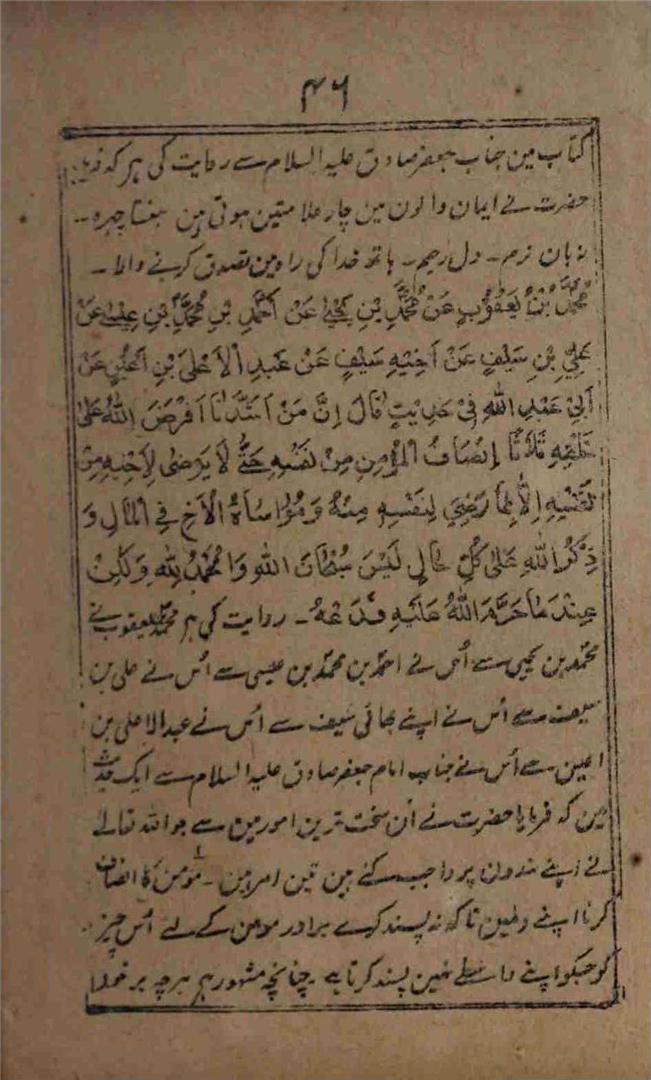 ۴۶
کتاب مین جناب جعفر صادق علیہ السلام سے روایت کی ہر کہ فرمایا
حضرت نے ایمان والون مین چار علامتین ہوتی ہین ہنستا چہرہ ۔۔
زبان نرم ۔ دل رحیم ۔ ہاتھ خدا کی راہ مین تصدق کرنے والا ۔
مُحَمَّدُ بْنُ يَعْقُوْبَ عَنْ مُحَمَّدِ بْنِ يَحْيٰى عَنْ اَحْمَدَ بْنِ مُحَمَّدِ بْنِ عِيْسٰى عَنْ
عَلِيِّ بْنِ سَيْفٍ عَنْ اَخِيْهِ سَيْفٍ عَنْ عَبْدِ الْاَعْلٰى بْنِ اَعْيُنٍ عَنْ
اَبِيْ عَبْدِ اللهِ فِيْ حَدِيْثٍ قَالَ اِنَّ مَنْ اَشَدَّ مَا اَفْرَضَ اللهُ عَلٰى
خَلْقِهِ ثَلَاثًا اِنْصَافُ الْمُؤْمِنِ مِنْ نَفْسِهِ حَتّٰى لَا يَرْضٰى لِاَخِيْهِ مِنْ
نَفْسِهِ اِلَّا بِمَا رَضِيَ لِنَفْسِهِ مِنْهُ وَمُوَاسَاةُ الْاَخِ فِي الْمَالِ وَ
ذِكْرُ اللهِ عَلٰى كُلِّ حَالٍ لَيْسَ سُبْحَانَ اللهِ وَالْحَمْدُ لِلّٰهِ وَلٰكِنْ
عِنْدَ مَا حَرَّمَ اللهُ عَلَيْهِ فَدَعْهُ ۔ روایت کی ہر محمد بن یعقوب نے
محمد بن یحیی سے اُس نے احمد بن محمد بن عیسی سے اُس نے علی بن
سیف سے اُس نے اپنے بھائی سیف سے اُس نے عبد الاعلی بن
اعین سے اُس نے جناب امام جعفر صادق علیہ السلام سے ایک حدیث
مین کہ فرمایا حضرت نے اُن سخت ترین امور مین سے جو اللہ تعالے
نے اپنے بندون پر واجب کئے ہین تین امر ہین ۔ مؤمن کا انصاف
کرنا اپنے نفس تاکہ نہ پسند کرے برادر مومن کے لئے اُس چیز
کو جسکو اپنے واسطے نہین پسند کرتا ہے ۔ چنانچہ مشہور ہر ہرچہ بر خود